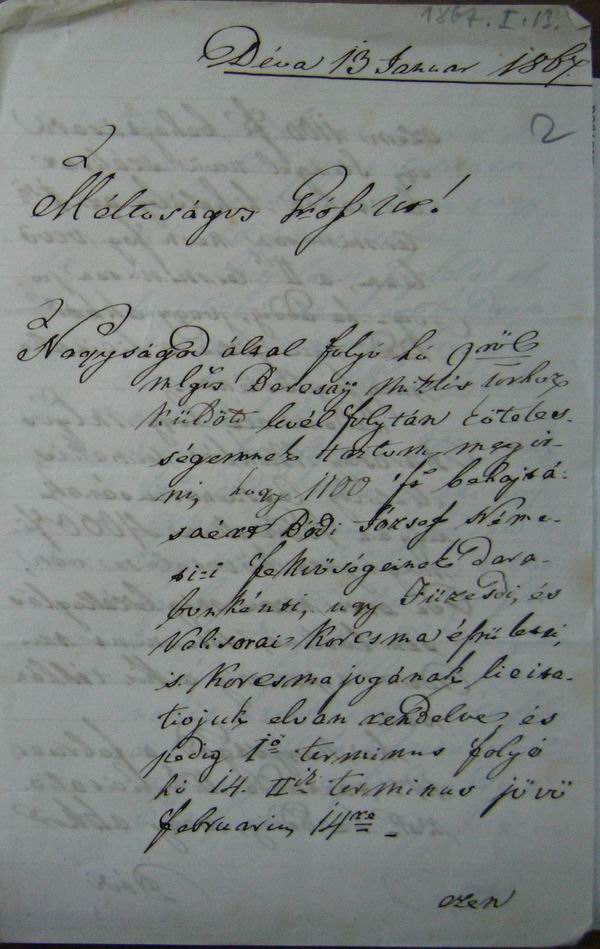 1867. I. 13.
Déva 13 Januar 1867.
2
Méltoságus Gróf Úr!
Nagyságod által folyó hó
mlgs Barcsaÿ Miklós úrhoz
küldött levél folytánköteles-
ségemnek tartom megir-
ni, hogy 1100 ft behajtá-
saért Bódi József Néme-
ti-i fekvőségeinek dara-
bonkénti, ugy Füzesdi, és
Valisorai Korcsma épületei,
s. Korcsma jogának licita-
tiojuk elvan rendelve, és
pedig Iő terminus folyó
hó 14. IIik terminus jövő
februarius 14re –
ezen